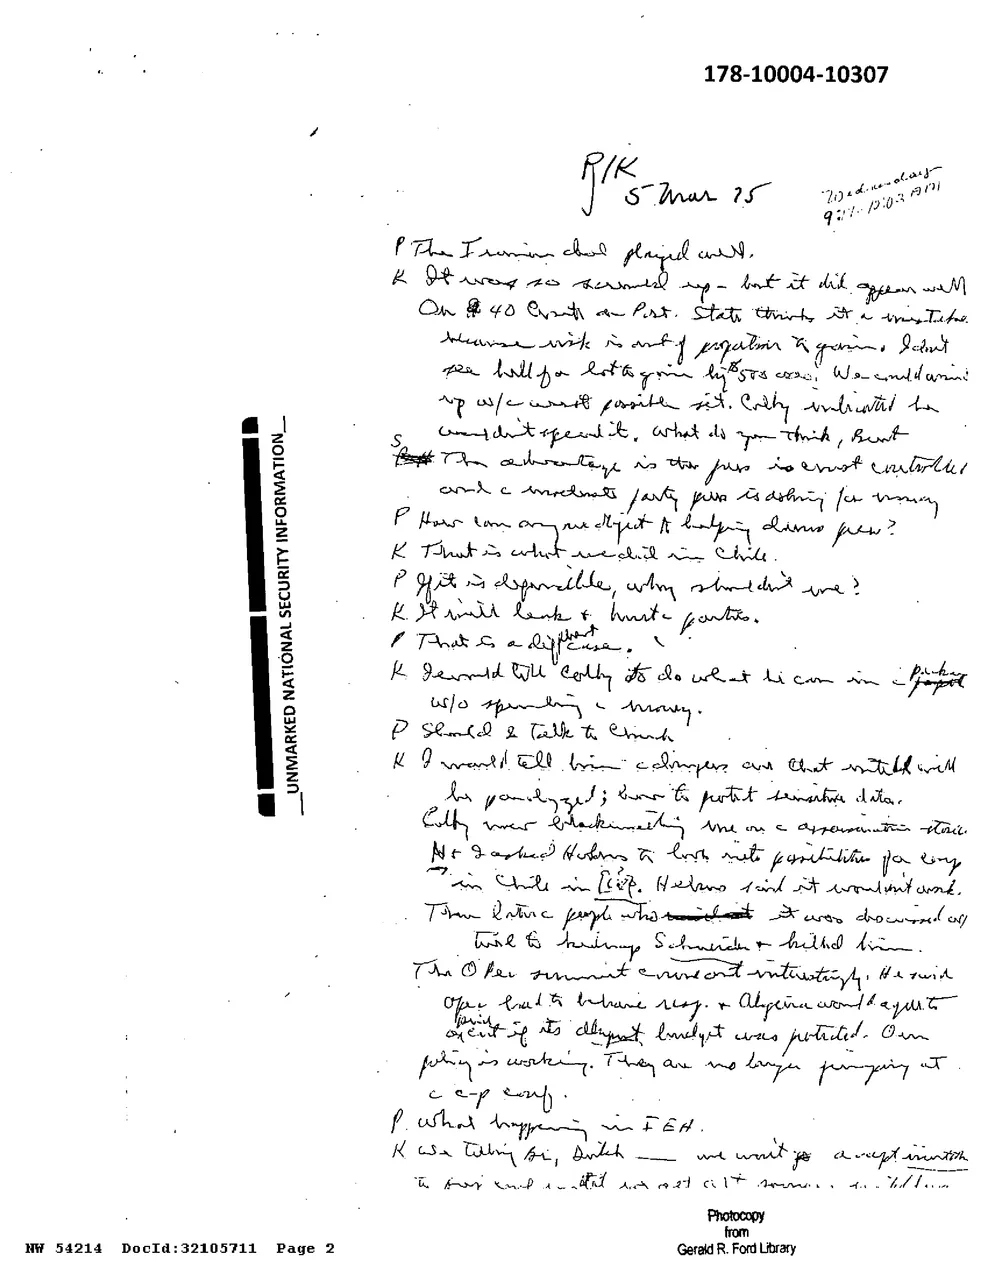 178-10004-10307
P/K
5 Mar 75
Wednesday
9:27-10:03 AM
P The Iranian deal played well.
K It was so screwed up - but it did appear well
On 40 Comte on Port. State thinks it a mistake
because risk is out of proportion to gain. I don't
see hell of a lot to gain by $500 000. We could wind
up w/ c worst possible sit. Colby indicated he
wouldn't spend it. What do you think, Brent
S The advantage is the press is communist controlled
and c moderate party press is asking for money
P How can anyone object to helping dems press?
K That is what we did in Chile.
P If it is defensible, why shouldn't we?
K It will leak & hurt c parties.
P That is a diff case.
K I would tell Colby to do what he can in c
w/o spending c money.
P Should I talk to Church
K I would tell him c dangers are that intell will
be paralyzed; how to protect sensitive data.
Colby now blackmailing me on c assassination stories
N & I asked Helms to look into possibilities for coup
in Chile in [ ]. Helms said it wouldn't work.
Then later c people who it was discussed w/
tried to kidnap Schneider & killed him.
The OPEC summit came out interestingly. He said
OPEC had to behave resp. & Algeria would agree to
price cut if its budget was protected. Our
policy is working. They are no longer jumping at
c c-p conf.
P What happening in IEA.
K We telling Br, Dutch — we won't accept
UNMARKED NATIONAL SECURITY INFORMATION
Photocopy
from
Gerald R. Ford Library
NW 54214 DocId:32105711 Page 2